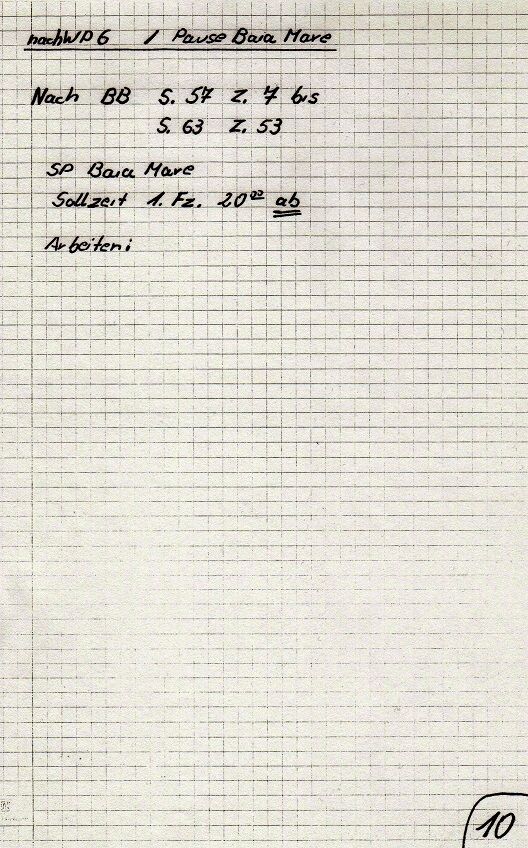 nach WP 6 / Pause Baia Mare
Nach BB S. 57 Z. 7 bis
S. 63 Z. 53
SP Baia Mare
Sollzeit 1. Fz. 20⁰⁰ ab
Arbeiten:
10